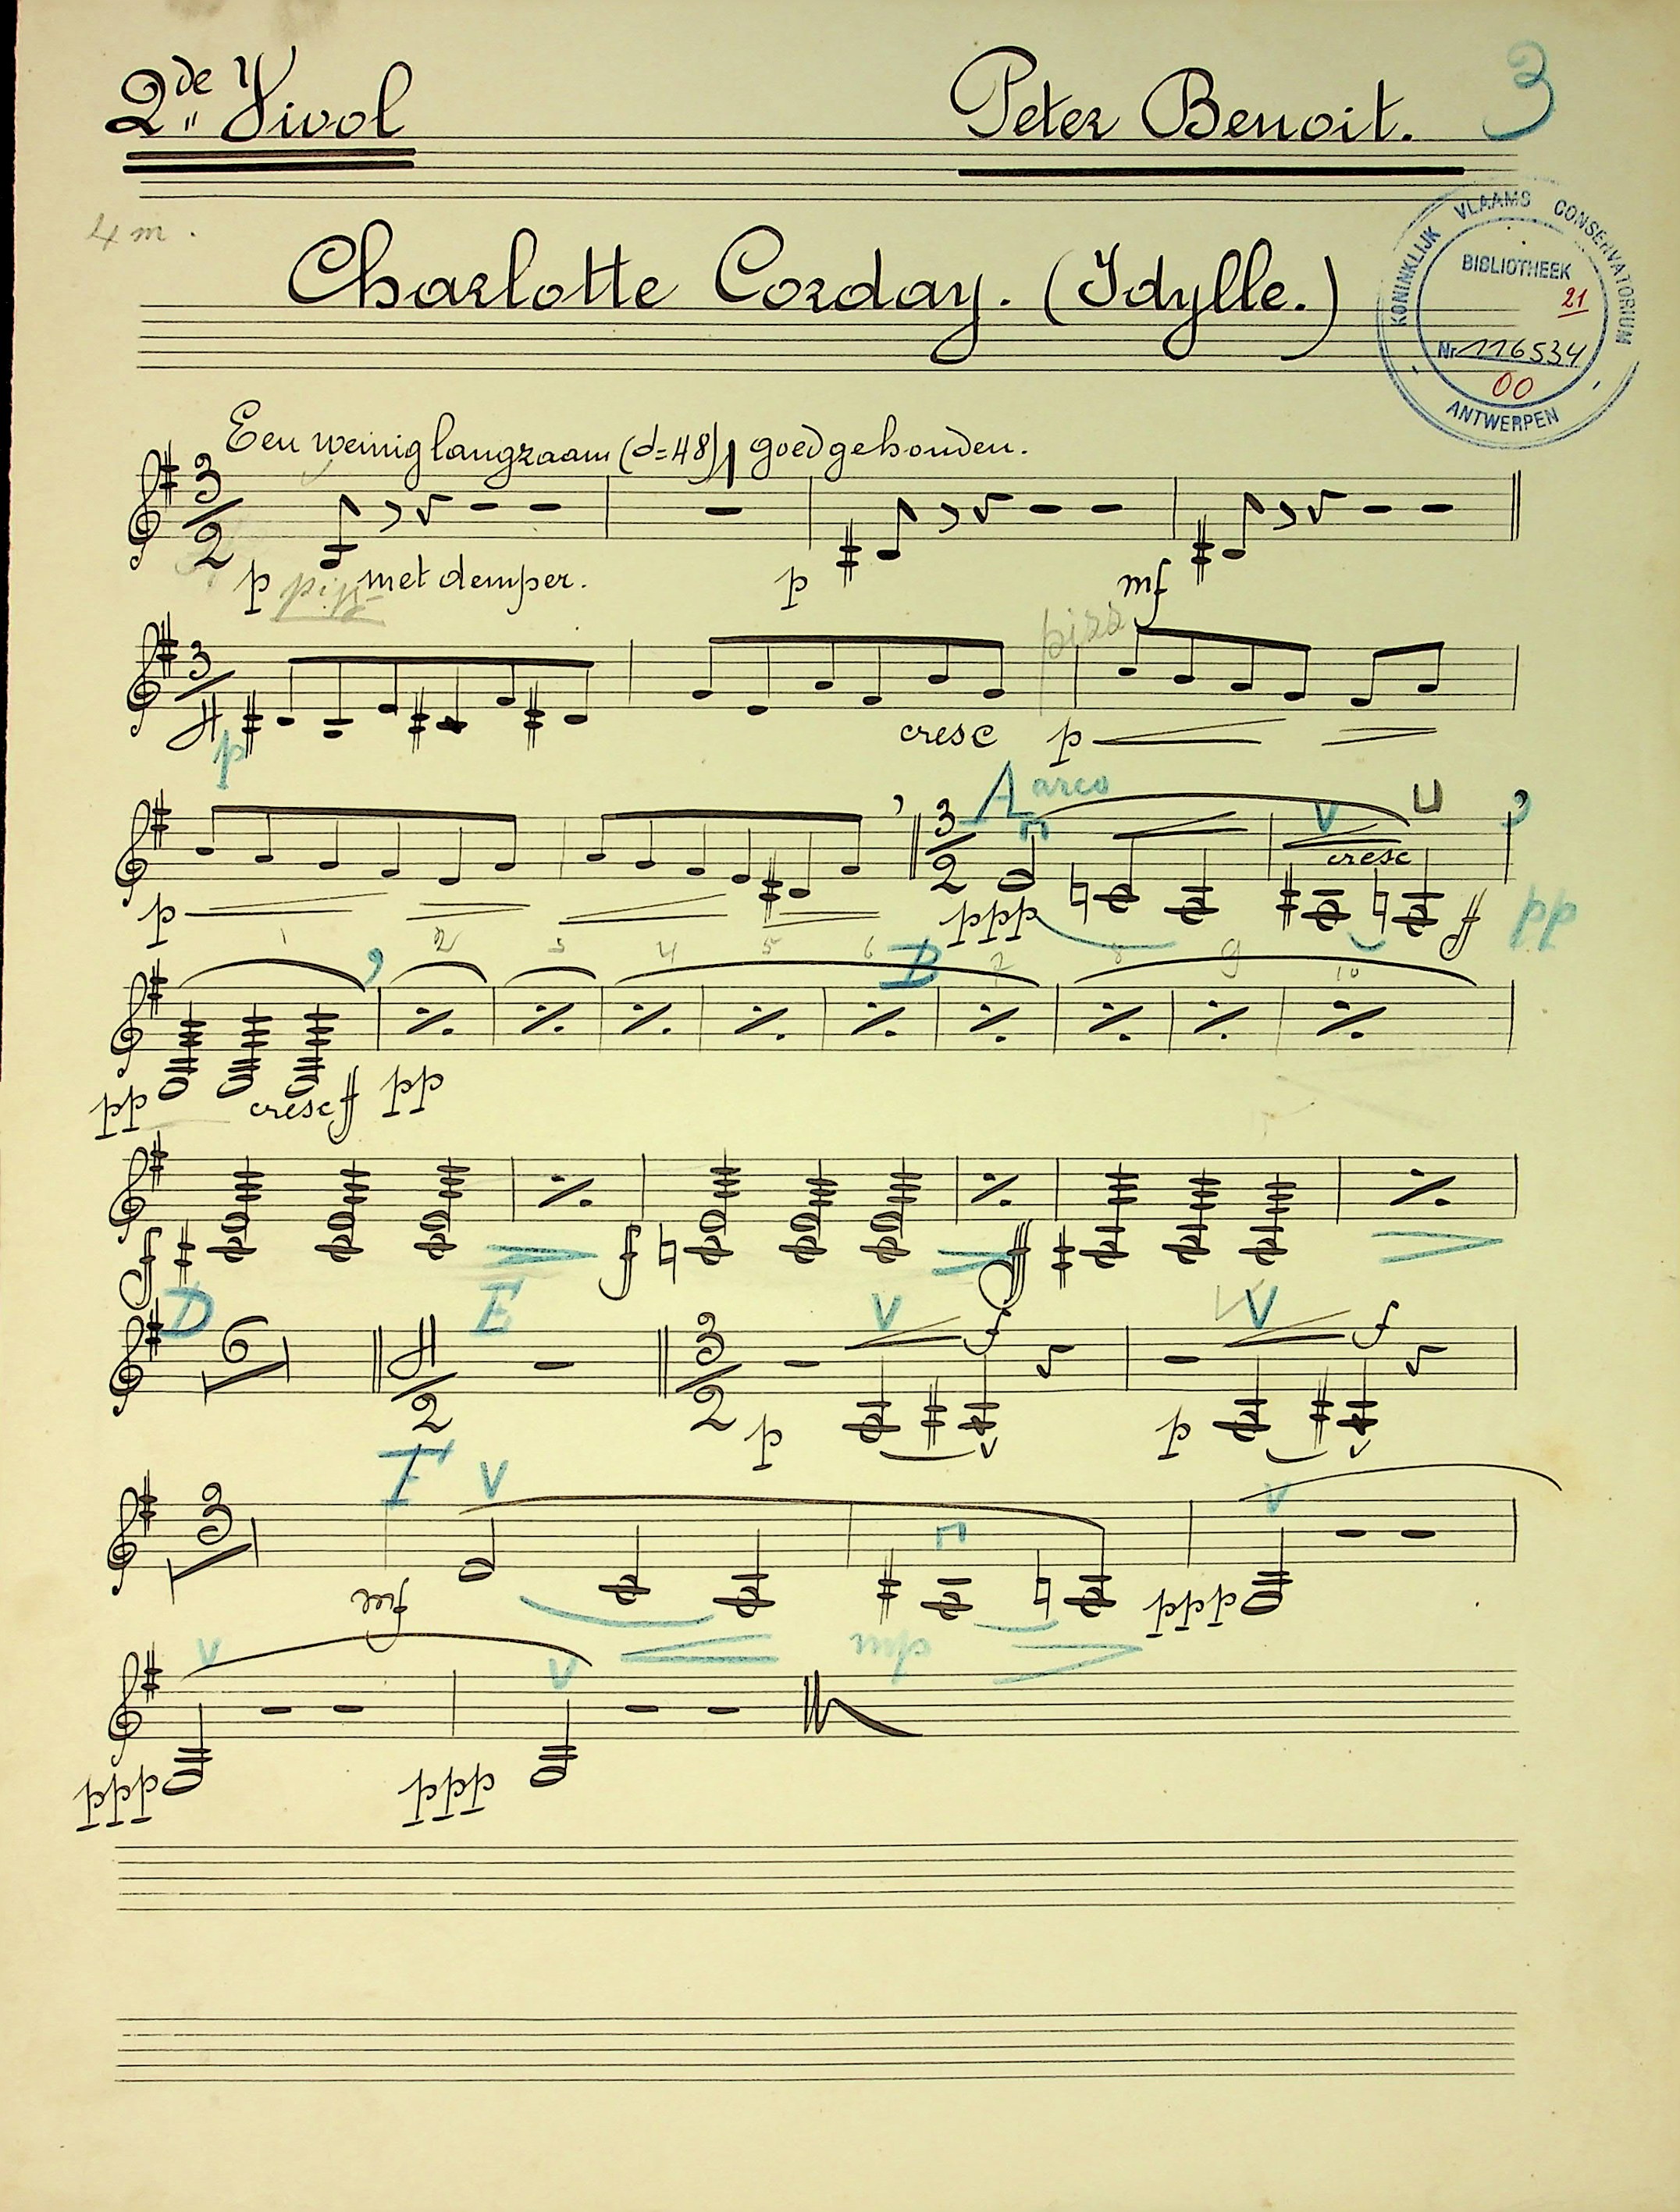 2de Viool
Peter Benoit.
3
4 m.
Charlotte Corday. (Idylle.)
KONINKLIJK VLAAMS CONSERVATORIUM
BIBLIOTHEEK
21
Nr 116534
00
ANTWERPEN
Een weinig langzaam (d=48) goed gehouden.
3
2
p pizz met demper. p mf
pizz
3
4
p cresc p
A arco
3
2
cresc
p ppp f pp
1 2 3 4 5 6 B 7 8 9 10
pp cresc f pp
f f ff
D E
6 4 2 3 2 f f
p p
F
3
mf ppp
mp
ppp ppp